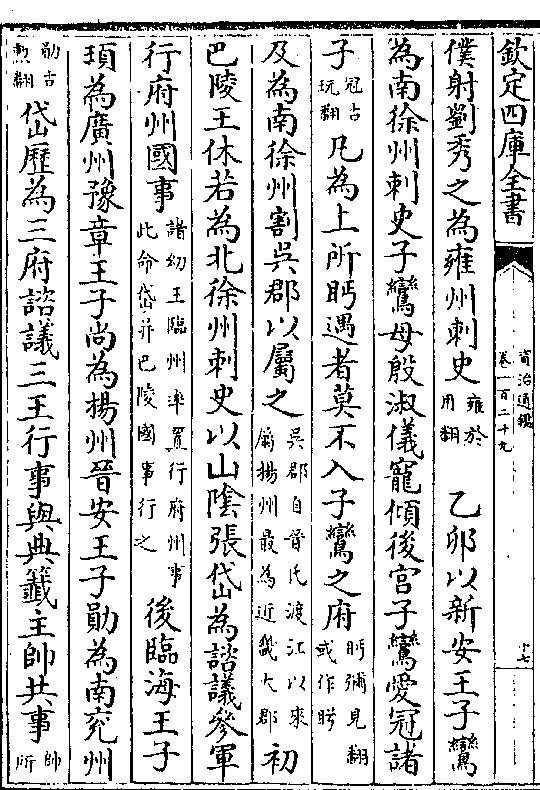 欽定四庫全書
資治通鑑
卷一百二十九
十七
僕射劉秀之為雍州刺史雍於用翻乙卯以新安王子鸞
為南徐州刺史子鸞母殷淑儀寵傾後宮子鸞愛冠諸
子冠古玩翻凡為上所眄遇者莫不入子鸞之府眄彌見翻或作盻
及為南徐州割吳郡以屬之吳郡自晉氏渡江以來屬揚州最為近畿大郡初
巴陵王休若為北徐州刺史以山陰張岱為諮議參軍
行府州國事諸幼王臨州率置行府州事此命岱并巴陵國事行之後臨海王子
頊為廣州豫章王子尚為揚州晉安王子勛為南兗州
勛古勲翻岱歷為三府諮議三王行事與典籤主帥共事帥所